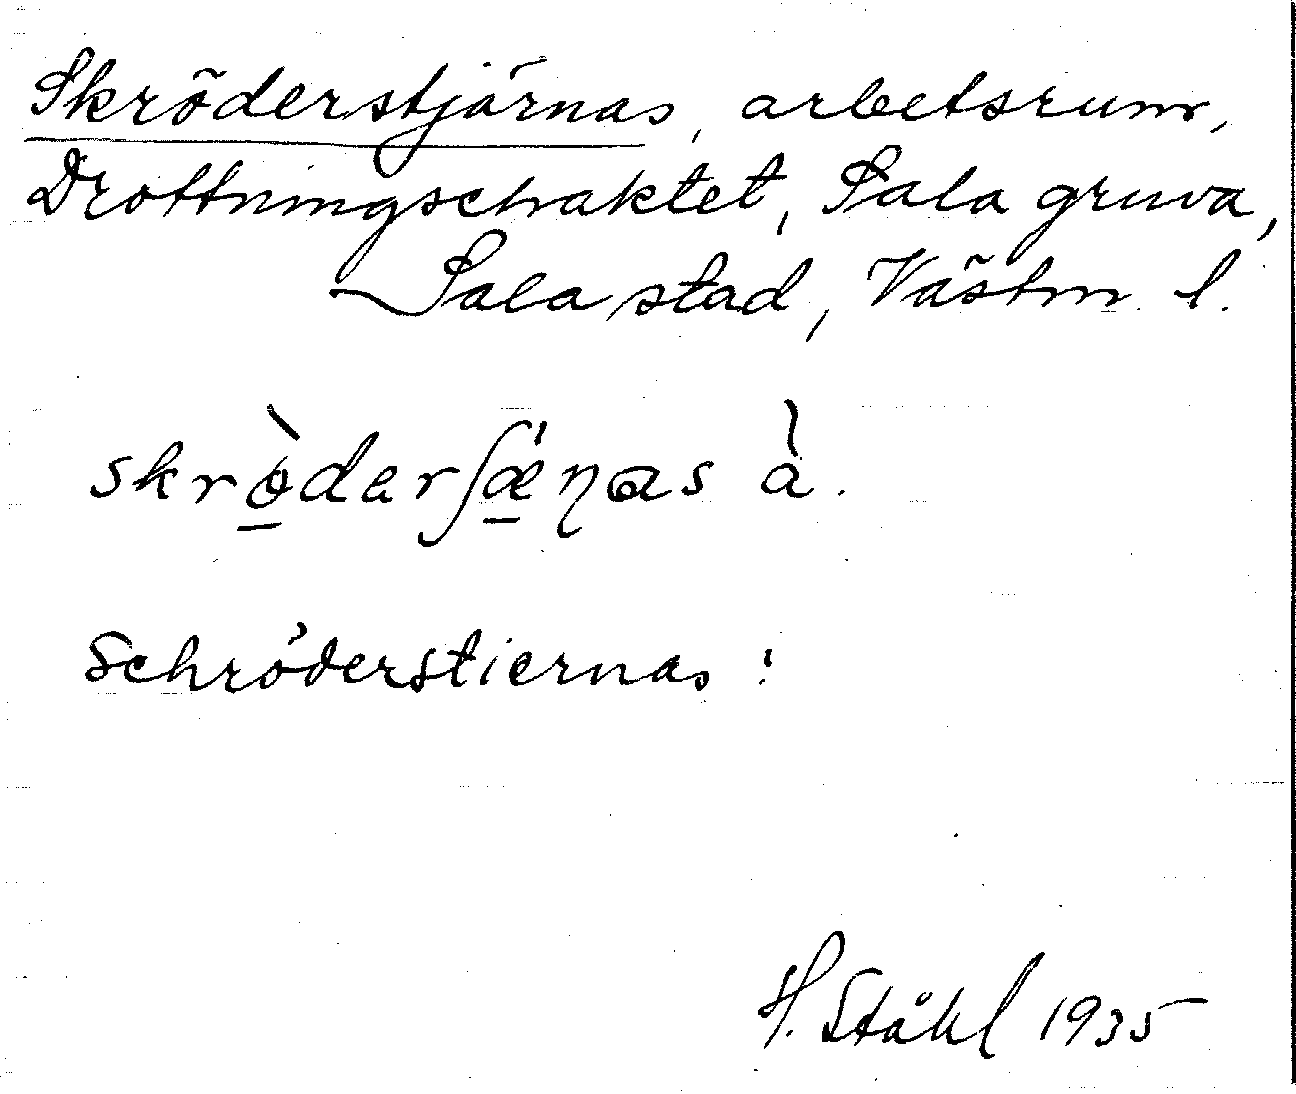 Skröderstjärnas, arbetsrum,
Drottningschaktet, Sala gruva,
Sala stad, Västm. l.
skrò̱darʃǽ̱ɳas à.
Schröderstiernas!
H. Ståhl 1935